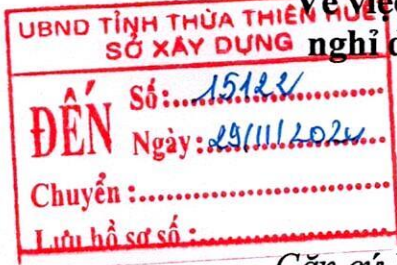 Về việc
UBND TỈNH THỪA THIÊN HUẾ
SỞ XÂY DỰNG
nghỉ d
ĐẾN
Số:....15122/..............
Ngày: 29/11/2024
Chuyển :..............................
Lưu hồ sơ số :......................
Căn cứ